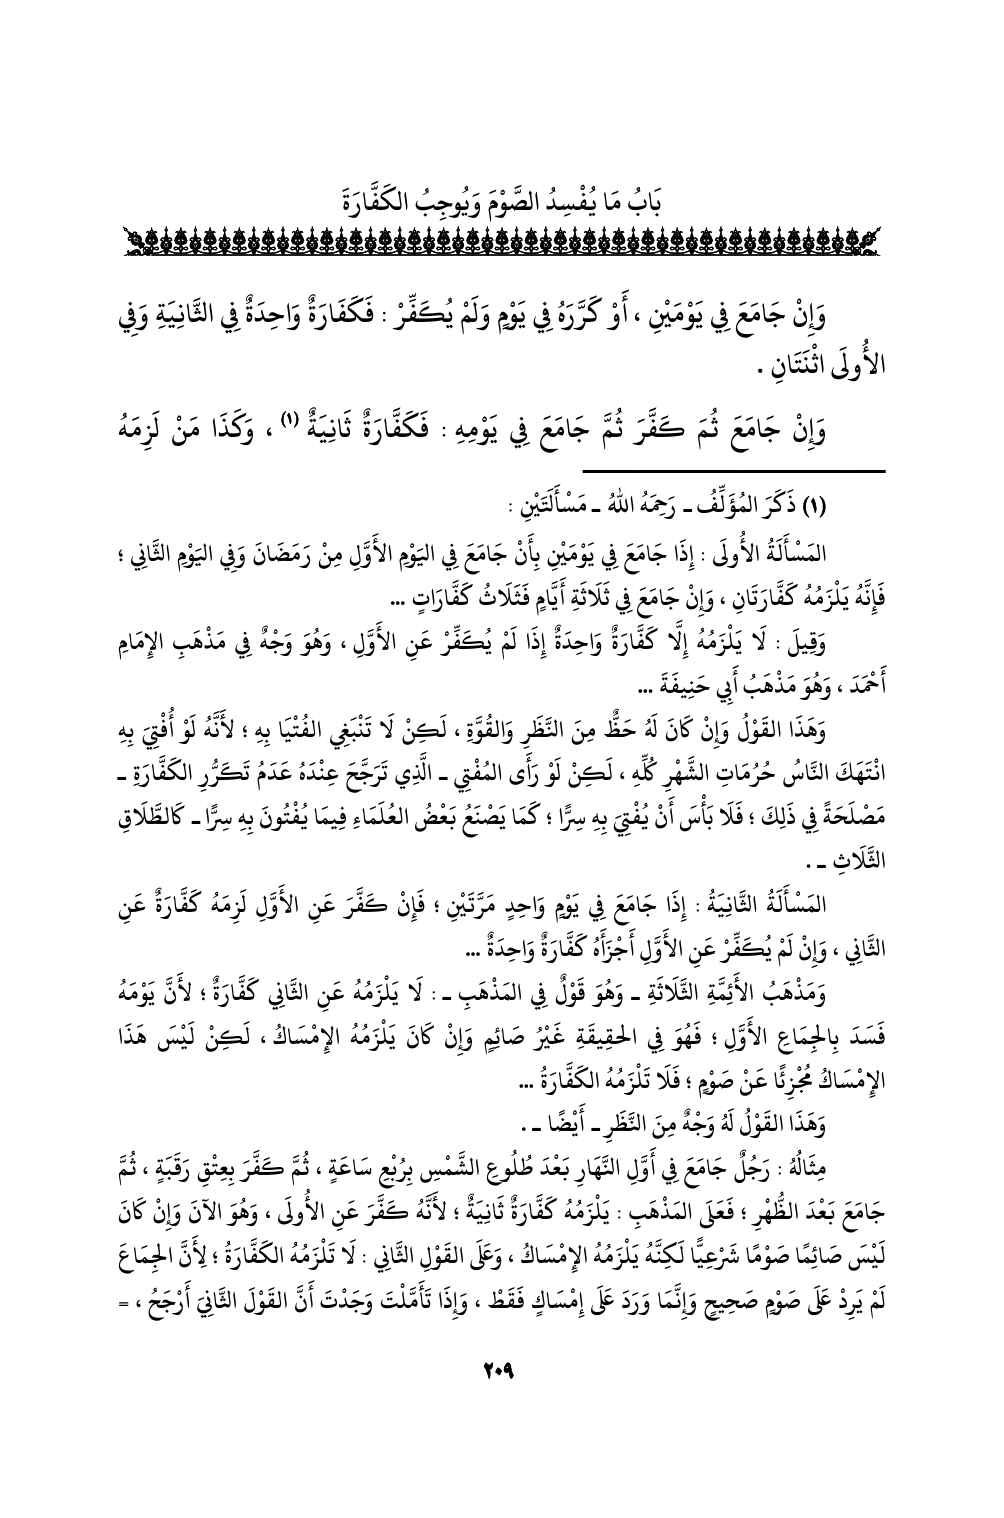 بَابُ مَا يُفْسِدُ الصَّوْمَ وَيُوجِبُ الكَفَّارَةَ
وَإِنْ جَامَعَ فِي يَوْمَيْنِ ، أَوْ كَرَّرَهُ فِي يَوْمٍ وَلَمْ يُكَفِّرْ : فَكَفَارَةٌ وَاحِدَةٌ فِي الثَّانِيَةِ وَفِي
الأُولَى اثْنَتَانِ .
وَإِنْ جَامَعَ ثُمَ كَفَّرَ ثُمَّ جَامَعَ فِي يَوْمِهِ : فَكَفَّارَةٌ ثَانِيَةٌ (١) ، وَكَذَا مَنْ لَزِمَهُ
(١) ذَكَرَ المُؤَلِّفُ ـ رَحِمَهُ اللهُ ـ مَسْأَلَتَيْنِ :
المَسْأَلَةُ الأُولَى : إِذَا جَامَعَ فِي يَوْمَيْنِ بِأَنْ جَامَعَ فِي اليَوْمِ الأَوَّلِ مِنْ رَمَضَانَ وَفِي اليَوْمِ الثَّانِي ؛
فَإِنَّهُ يَلْزَمُهُ كَفَّارَتَانِ ، وَإِنْ جَامَعَ فِي ثَلَاثَةِ أَيَّامٍ فَثَلَاثُ كَفَّارَاتٍ ...
وَقِيلَ : لَا يَلْزَمُهُ إِلَّا كَفَّارَةٌ وَاحِدَةٌ إِذَا لَمْ يُكَفِّرْ عَنِ الأَوَّلِ ، وَهُوَ وَجْهٌ فِي مَذْهَبِ الإِمَامِ
أَحْمَدَ ، وَهُوَ مَذْهَبُ أَبِي حَنِيفَةَ ...
وَهَذَا القَوْلُ وَإِنْ كَانَ لَهُ حَظٌّ مِنَ النَّظَرِ وَالقُوَّةِ ، لَكِنْ لَا تَنْبَغِي الفُتْيَا بِهِ ؛ لأَنَّهُ لَوْ أُفْتِيَ بِهِ
انْتَهَكَ النَّاسُ حُرُمَاتِ الشَّهْرِ كُلِّهِ ، لَكِنْ لَوْ رَأَى المُفْتِي ـ الَّذِي تَرَجَّحَ عِنْدَهُ عَدَمُ تَكَرُّرِ الكَفَّارَةِ ـ
مَصْلَحَةً فِي ذَلِكَ ؛ فَلَا بَأْسَ أَنْ يُفْتِيَ بِهِ سِرًّا ؛ كَمَا يَصْنَعُ بَعْضُ العُلَمَاءِ فِيمَا يُفْتُونَ بِهِ سِرًّا ـ كَالطَّلَاقِ
الثَّلَاثِ ـ .
المَسْأَلَةُ الثَّانِيَةُ : إِذَا جَامَعَ فِي يَوْمٍ وَاحِدٍ مَرَّتَيْنِ ؛ فَإِنْ كَفَّرَ عَنِ الأَوَّلِ لَزِمَهُ كَفَّارَةٌ عَنِ
الثَّانِي ، وَإِنْ لَمْ يُكَفِّرْ عَنِ الأَوَّلِ أَجْزَأَهُ كَفَّارَةٌ وَاحِدَةٌ ...
وَمَذْهَبُ الأَئِمَّةِ الثَّلَاثَةِ ـ وَهُوَ قَوْلٌ فِي المَذْهَبِ ـ : لَا يَلْزَمُهُ عَنِ الثَّانِي كَفَّارَةٌ ؛ لأَنَّ يَوْمَهُ
فَسَدَ بِالجِمَاعِ الأَوَّلِ ؛ فَهُوَ فِي الحَقِيقَةِ غَيْرُ صَائِمٍ وَإِنْ كَانَ يَلْزَمُهُ الإِمْسَاكُ ، لَكِنْ لَيْسَ هَذَا
الإِمْسَاكُ مُجْزِئًا عَنْ صَوْمٍ ؛ فَلَا تَلْزَمُهُ الكَفَّارَةُ ...
وَهَذَا القَوْلُ لَهُ وَجْهٌ مِنَ النَّظَرِ ـ أَيْضًا ـ .
مِثَالُهُ : رَجُلٌ جَامَعَ فِي أَوَّلِ النَّهَارِ بَعْدَ طُلُوعِ الشَّمْسِ بِرُبْعِ سَاعَةٍ ، ثُمَّ كَفَّرَ بِعِتْقِ رَقَبَةٍ ، ثُمَّ
جَامَعَ بَعْدَ الظُّهْرِ ؛ فَعَلَى المَذْهَبِ : يَلْزَمُهُ كَفَّارَةٌ ثَانِيَةٌ ؛ لأَنَّهُ كَفَّرَ عَنِ الأُولَى ، وَهُوَ الآنَ وَإِنْ كَانَ
لَيْسَ صَائِمًا صَوْمًا شَرْعِيًّا لَكِنَّهُ يَلْزَمُهُ الإِمْسَاكُ ، وَعَلَى القَوْلِ الثَّانِي : لَا تَلْزَمُهُ الكَفَّارَةُ ؛ لِأَنَّ الجِمَاعَ
لَمْ يَرِدْ عَلَى صَوْمٍ صَحِيحٍ وَإِنَّمَا وَرَدَ عَلَى إِمْسَاكٍ فَقَطْ ، وَإِذَا تَأَمَّلْتَ وَجَدْتَ أَنَّ القَوْلَ الثَّانِيَ أَرْجَحُ ، =
٢٠٩